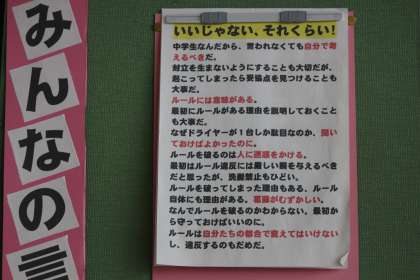 みんなの言
いいじゃない、それくらい！
中学生なんだから、言われなくても自分で考
えるべきだ。
対立を生まないようにすることも大切だが、
起こってしまったら妥協点を見つけることも
大事だ。
ルールには意味がある。
最初にルールがある理由を説明しておくこと
も大事だ。
なぜドライヤーが１台しか駄目なのか、聞い
ておけばよかったのに。
ルールを破るのは人に迷惑をかける。
最初はルール違反には厳しい罰を与えるべき
だと思ったが、洗髪禁止もひどい。
ルールを破ってしまった理由もある、ルール
自体にも理由がある。葛藤がむずかしい。
なんでルールを破るのかわからない、最初か
ら守っておけばいいのに。
ルールは自分たちの都合で変えてはいけない
し、違反するのもだめだ。